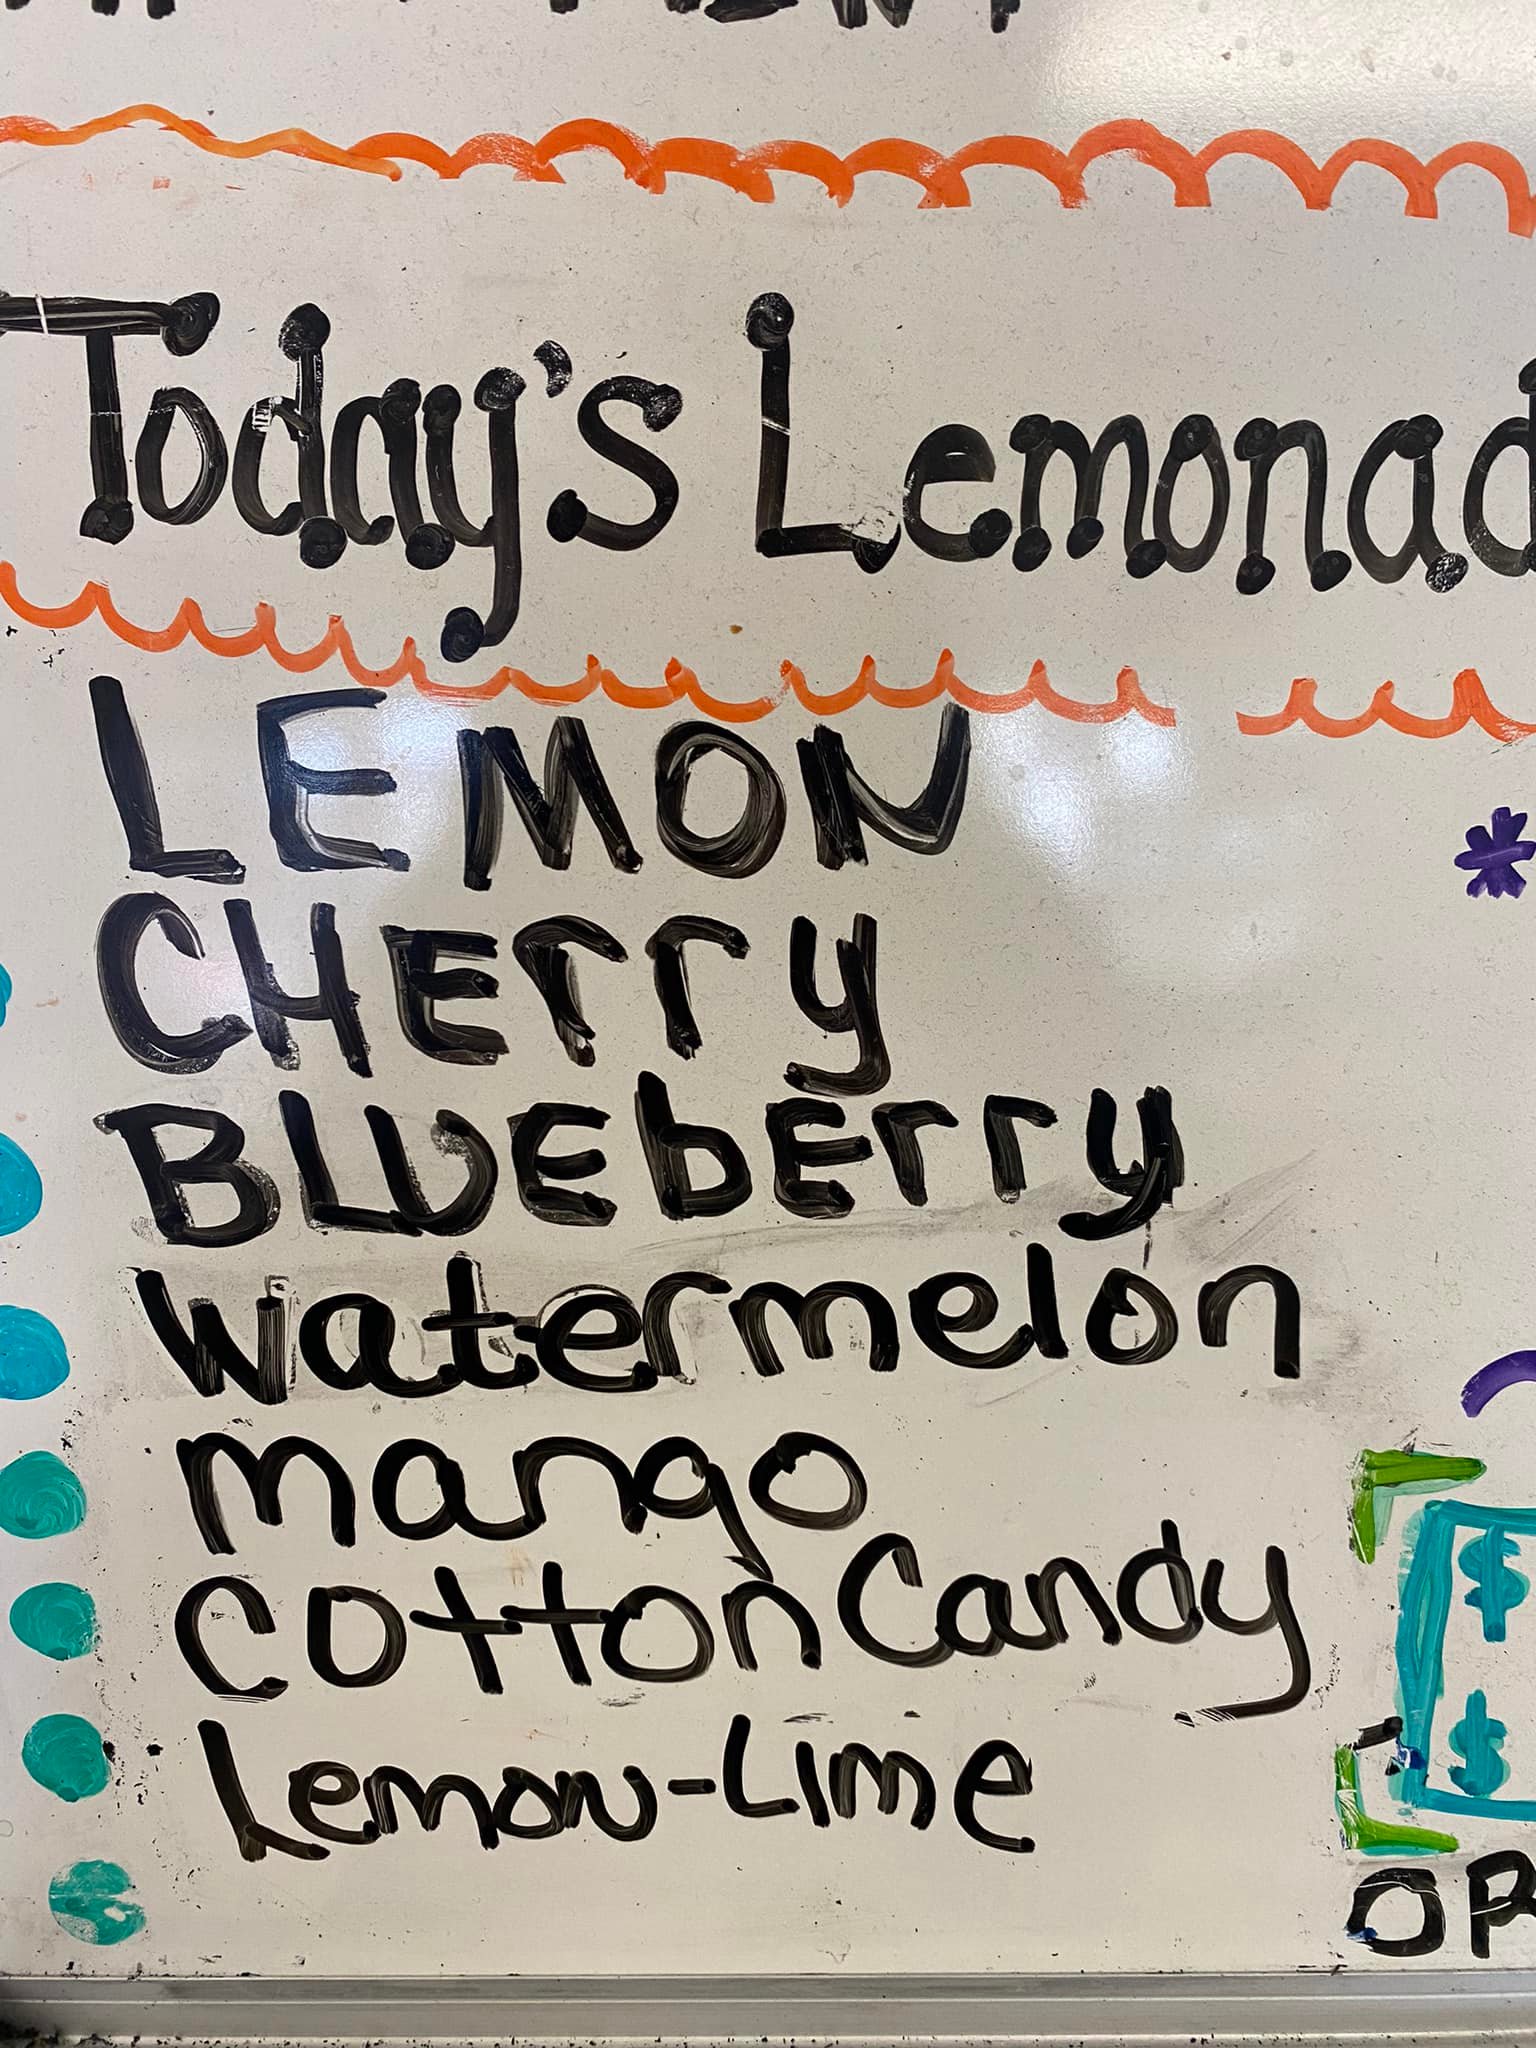 Today's Lemonad
LEMON
CHErry
BLUEbErry
Watermelon
mango
Cotton Candy
Lemon-Lime
$
$
OR